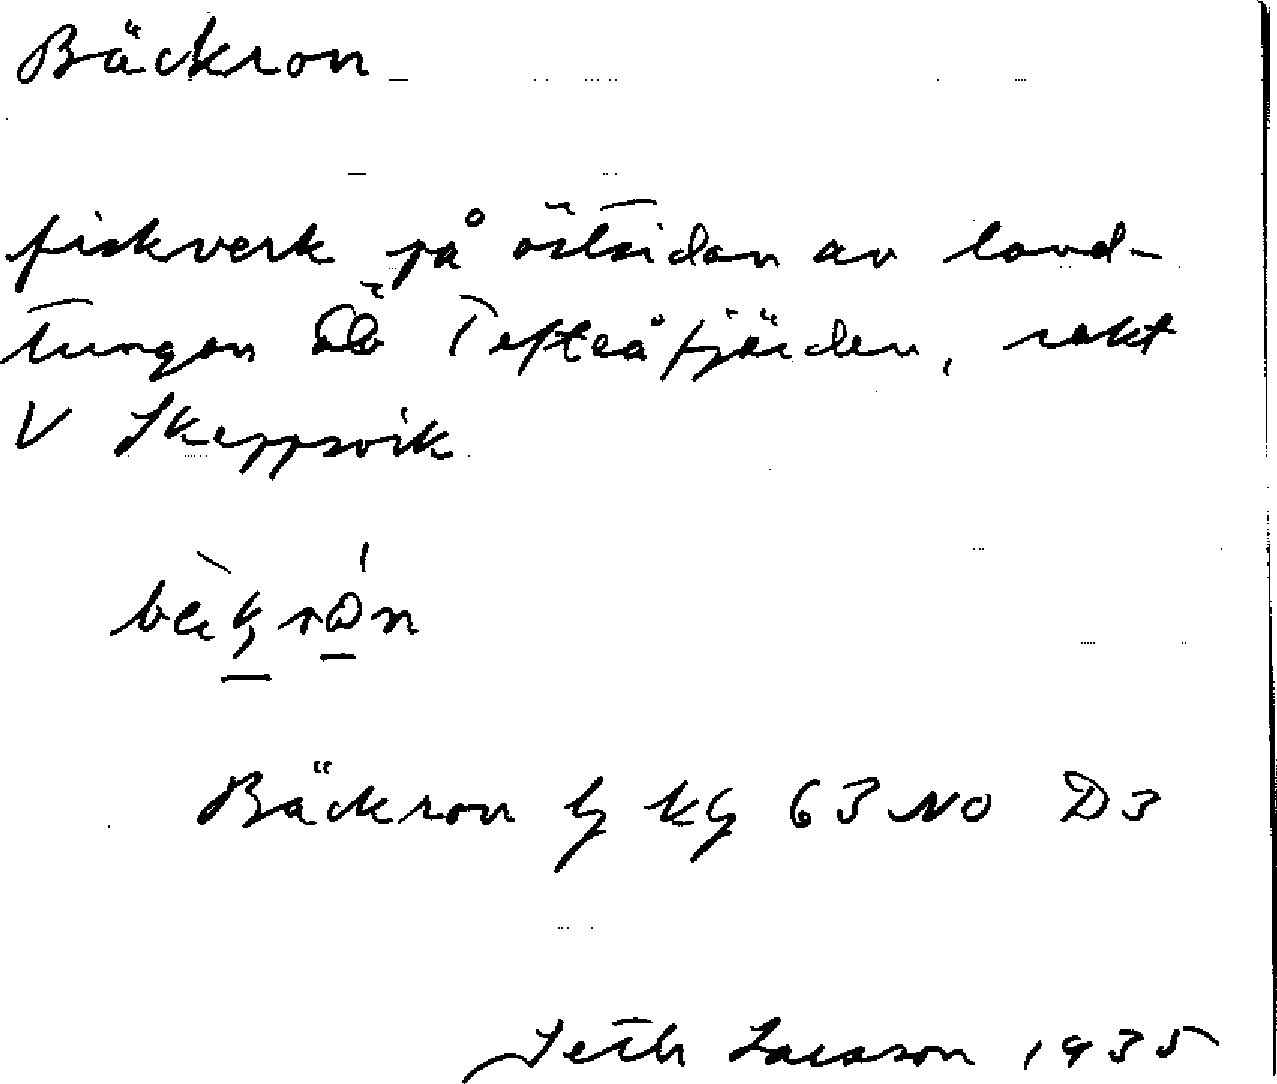 Bäckron
fiskverk på östsidan av land-
tungan Ö Tefteåfjärden, rakt
V Skeppsvik
Bäckron kg 63 NO D3
Seth Larsson 1935